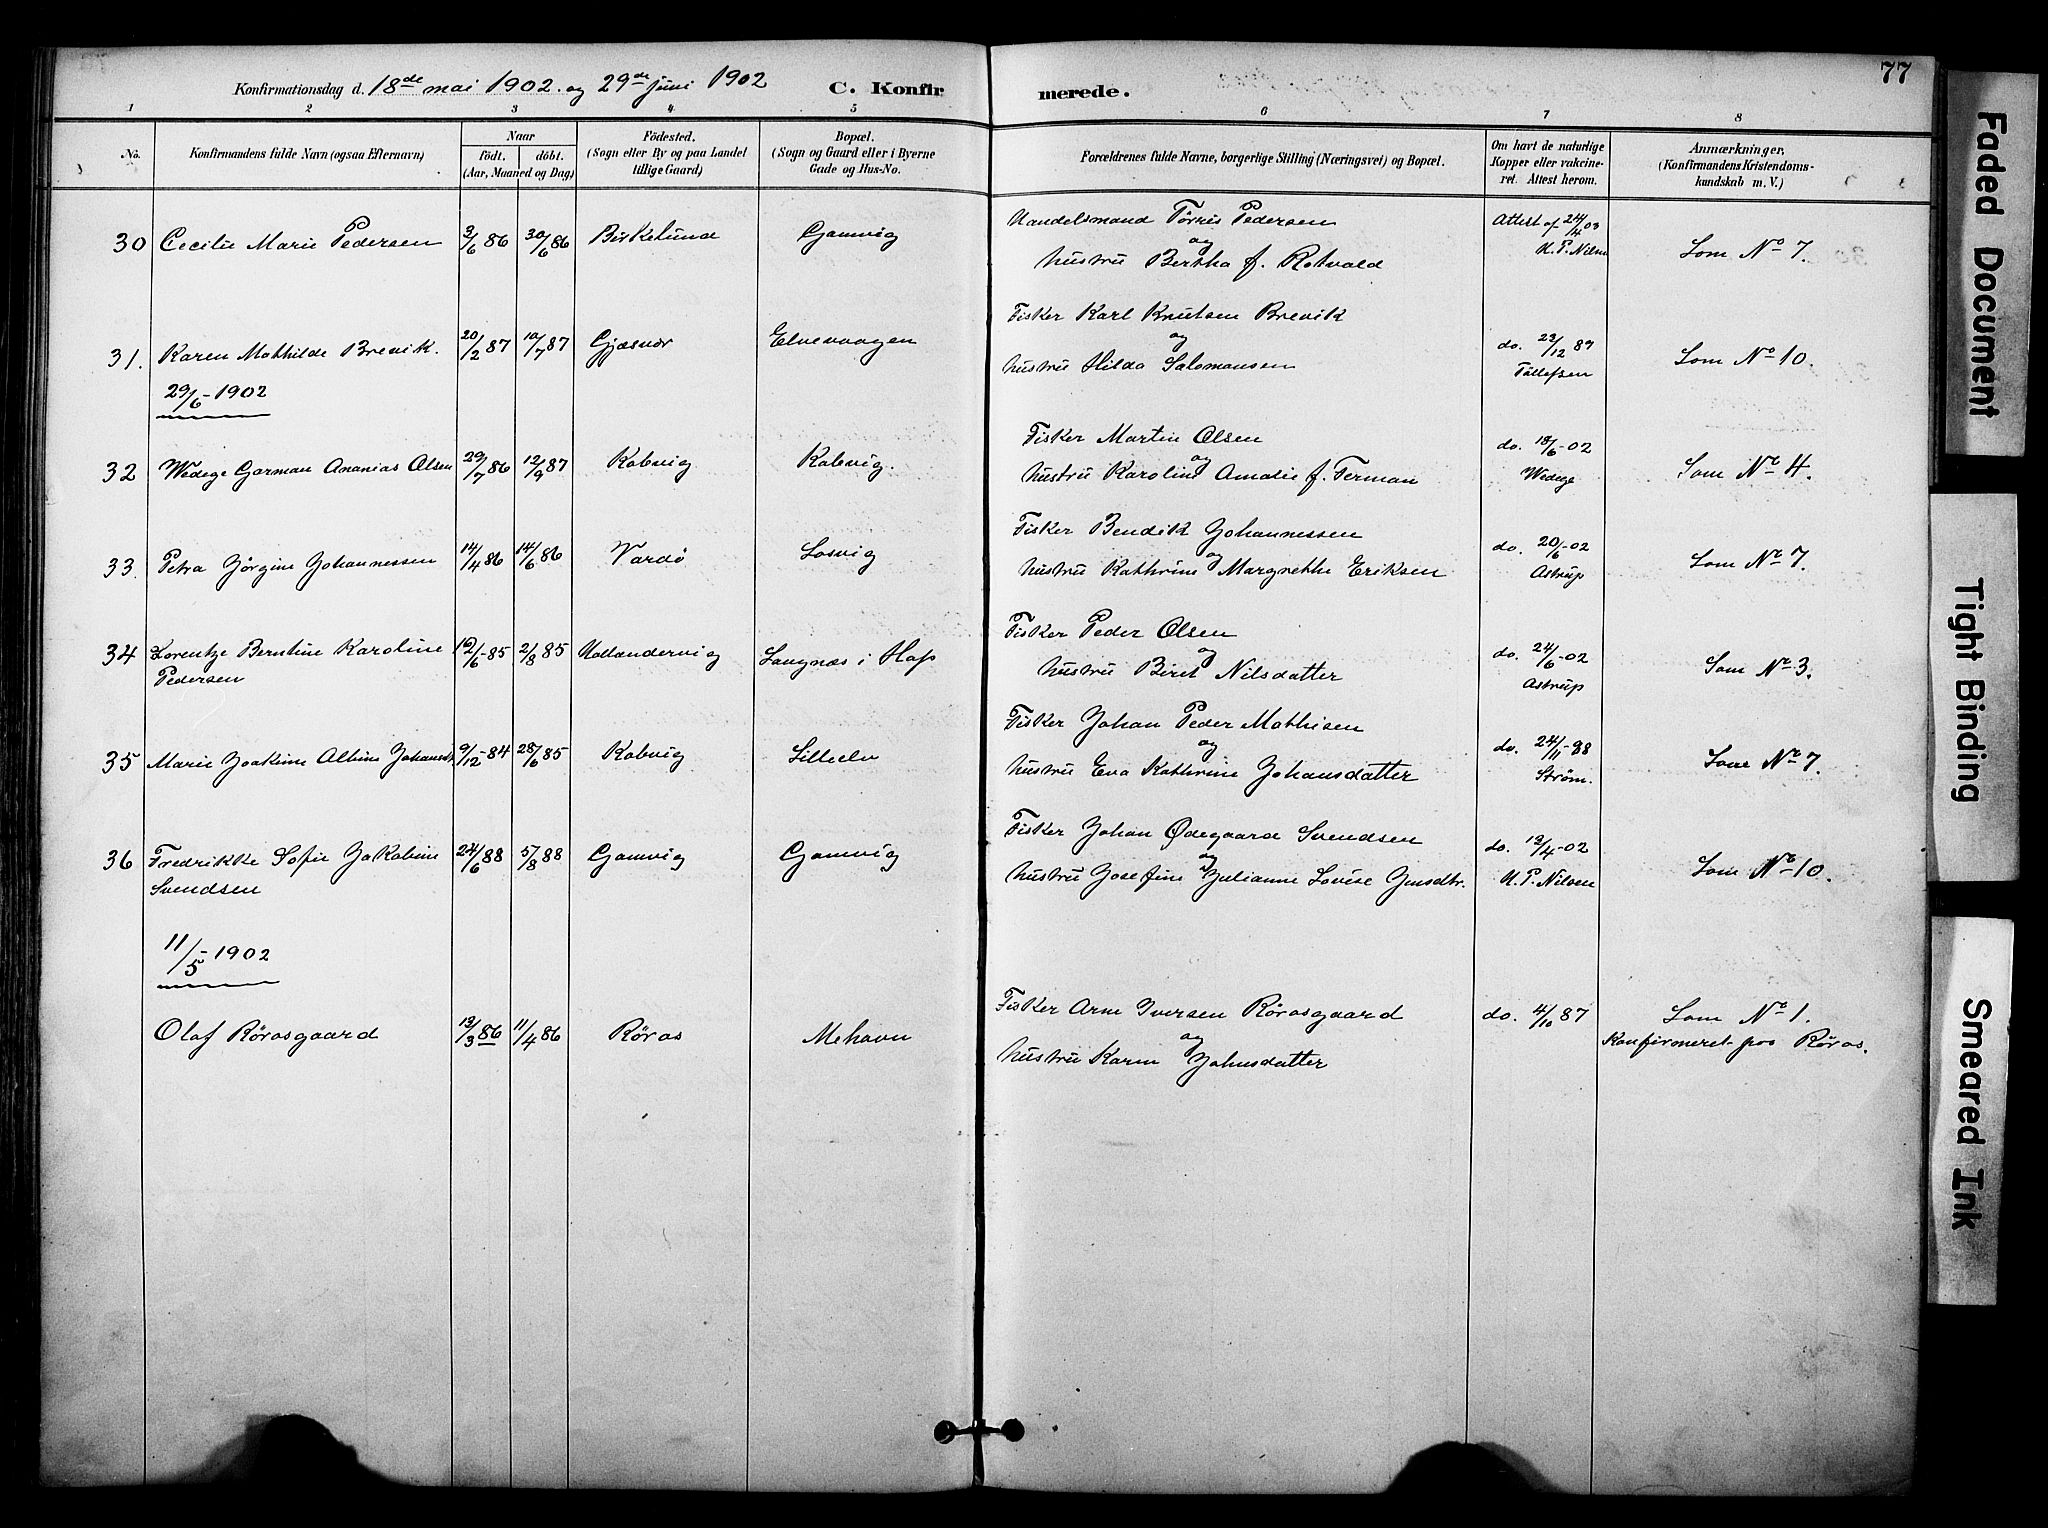 Konfirmationsdag d. 18de mai 1902 og 29de juni 1902 C. Konfirmerede. 77
1 2 3 4 5 6 7 8
No. Konfirmandens fulde Navn (ogsaa Efternavn) Naar født. døbt. (Aar, Maaned og Dag) Fødested. (Sogn eller By og paa Landet tillige Gaard) Bopæl. (Sogn og Gaard eller i Byerne Gade og Hus-No. Forældrenes fulde Navne, borgerlige Stilling (Næringsvei) og Bopæl. Om havt de naturlige Kopper eller vakcineret. Attest herom. Anmærkninger, (Konfirmandens Kristendomskundskab m. V.)
30 Cecilie Marie Pedersen 3/6 86 30/6 86 Birkelund Gamvig Handelsmand Tørris Pedersen og Attest af 24/4 03
hustru Bertha f. Rotvald H. P. Nilsen Som No 7.
31. Karen Mathilde Brevik. 20/2 87 10/7 87 Gjæsvær Elvevaagen Fisker Karl Knutsen Brevik og do. 23/12 89
hustru Hilda Salomonsen Tollefsen Som No 10.
29/6-1902
32 Wedege Garman Ananias Olsen 29/7 86 12/9 87 Kobvig Kobvig. Fisker Martin Olsen og do. 18/6-02
hustru Karoline Amalie f. Ferman Wedege Som No 4.
33. Petra Jørgine Johannessen 14/4 86 14/6 86 Vardø Losvig Fisker Bendik Johannessen og do. 20/6-02
hustru Kathrine Margrethe Eriksen Astrup Som No 7.
34 Lorentze Berntine Karoline Pedersen 12/6-85 2/8 85 Hollendervig Langnæs i Hop Fisker Peder Olsen og do. 24/6-02
hustru Beret Nilsdatter Astrup Som No 3.
35 Marie Joakime Albine Johansdt. 9/12-84 28/6 85 Kobvig Lilleelv Fisker Johan Peder Mathisen og do. 24/11-98
hustru Eva Kathrine Johansdatter Strøm. Som No 7.
36 Fredrikke Sofie Jakobine Svendsen 24/6 88 5/8 88 Gamvig Gamvig Fisker Johan Ødegaard Svendsen og do. 12/4-02
hustru Josefine Julianne Lovise Jensdtr. H. P. Nilsen Som No 10.
11/5-1902
Olaf Rørosgaard 13/3 86 11/4 86 Røros Mehavn Fisker Arne Iversen Rørosgaard og do. 4/10 87 Som No 1.
hustru Karen Johnsdatter Konfirmeret paa Røros.
Faded Document
Tight Binding
Smeared Ink